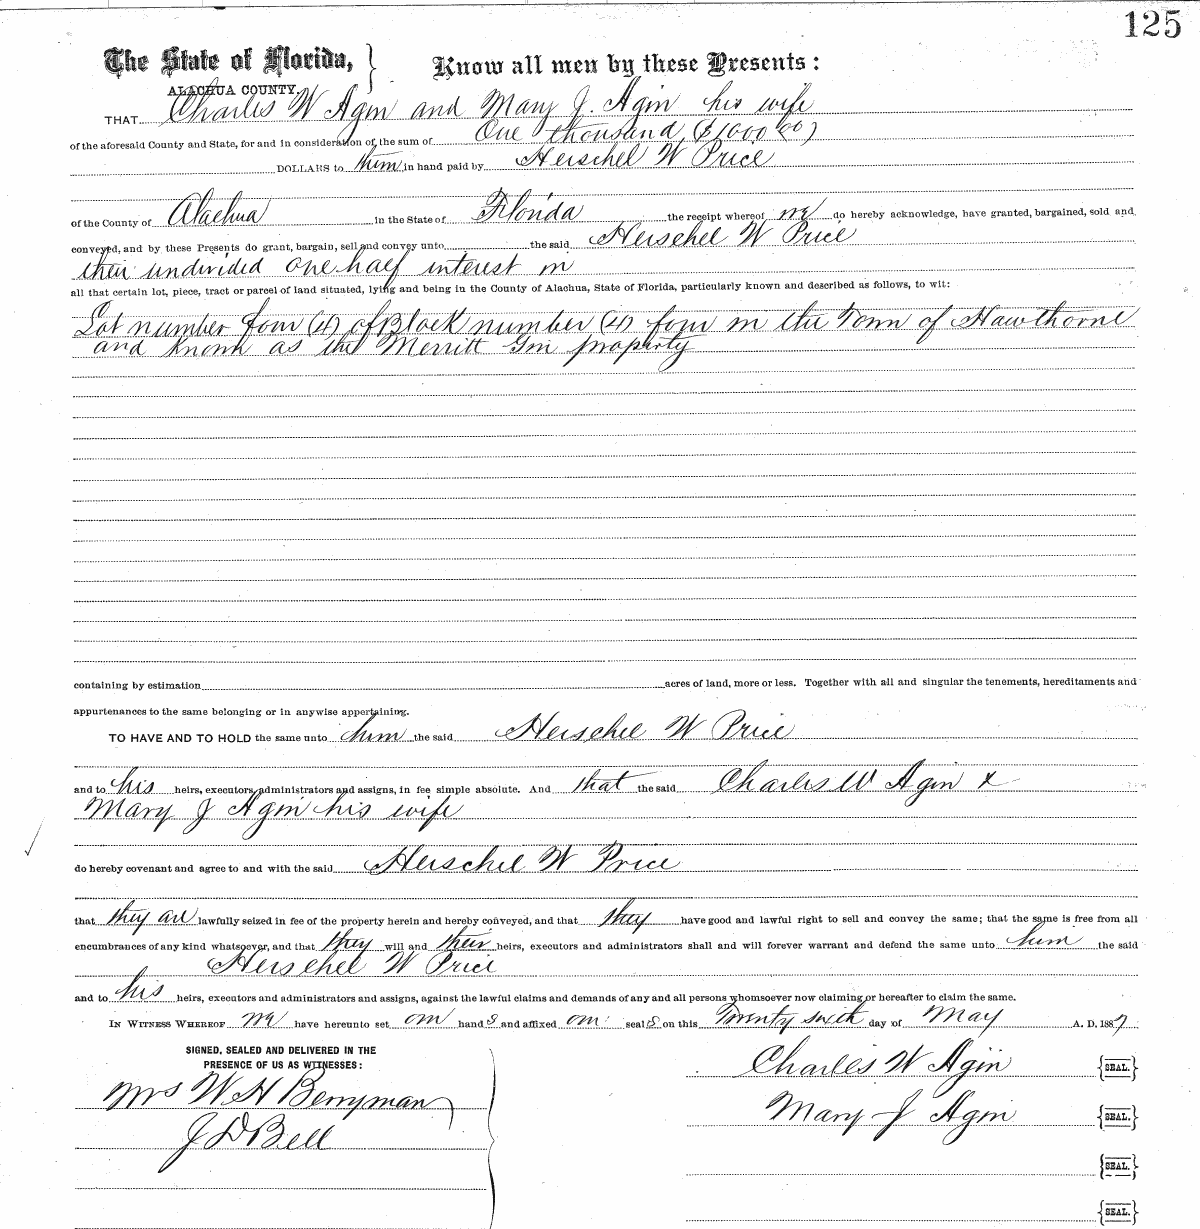 125
The State of Florida, } Know all men by these Presents:
ALACHUA COUNTY.
THAT Charles W Agin and Mary J. Agin his wife
of the aforesaid County and State, for and in consideration of the sum of One thousand ($1000 00)
DOLLARS to them in hand paid by Herschel W Price
of the County of Alachua in the State of Florida the receipt whereof we do hereby acknowledge, have granted, bargained, sold and
conveyed, and by these Presents do grant, bargain, sell and convey unto the said Herschel W Price
their undivided one half interest in
all that certain lot, piece, tract or parcel of land situated, lying and being in the County of Alachua, State of Florida, particularly known and described as follows, to wit:
Lot number four (4) of Block number (4) four in the Town of Hawthorne
and known as the Merritt Gin property
containing by estimation acres of land, more or less. Together with all and singular the tenements, hereditaments and
appurtenances to the same belonging or in anywise appertaining.
TO HAVE AND TO HOLD the same unto him the said Herschel W Price
and to his heirs, executors, administrators and assigns, in fee simple absolute. And that the said Charles W Agin &
Mary J Agin his wife
do hereby covenant and agree to and with the said Herschel W Price
that they are lawfully seized in fee of the property herein and hereby conveyed, and that they have good and lawful right to sell and convey the same; that the same is free from all
encumbrances of any kind whatsoever, and that they will and their heirs, executors and administrators shall and will forever warrant and defend the same unto him the said
Herschel W Price
and to his heirs, executors and administrators and assigns, against the lawful claims and demands of any and all persons whomsoever now claiming or hereafter to claim the same.
IN WITNESS WHEREOF we have hereunto set our hands and affixed our seals on this Twenty sixth day of May A. D. 1887
SIGNED, SEALED AND DELIVERED IN THE
PRESENCE OF US AS WITNESSES:
Charles W Agin {SEAL.}
Mrs W H Berryman
Mary J Agin {SEAL.}
J D Bell
{SEAL.}
{SEAL.}